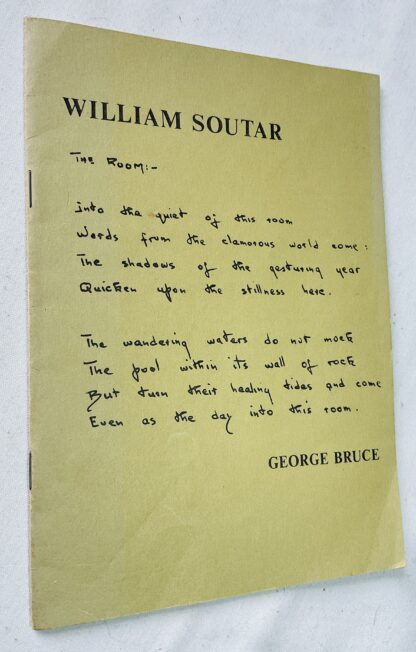 WILLIAM SOUTAR
The Room:-
Into the quiet of this room
Words from the clamorous world come:
The shadows of the gesturing year
Quicken upon the stillness here.
The wandering waters do not mock
The pool within its wall of rock
But turn their healing tides and come
Even as the day into this room.
GEORGE BRUCE